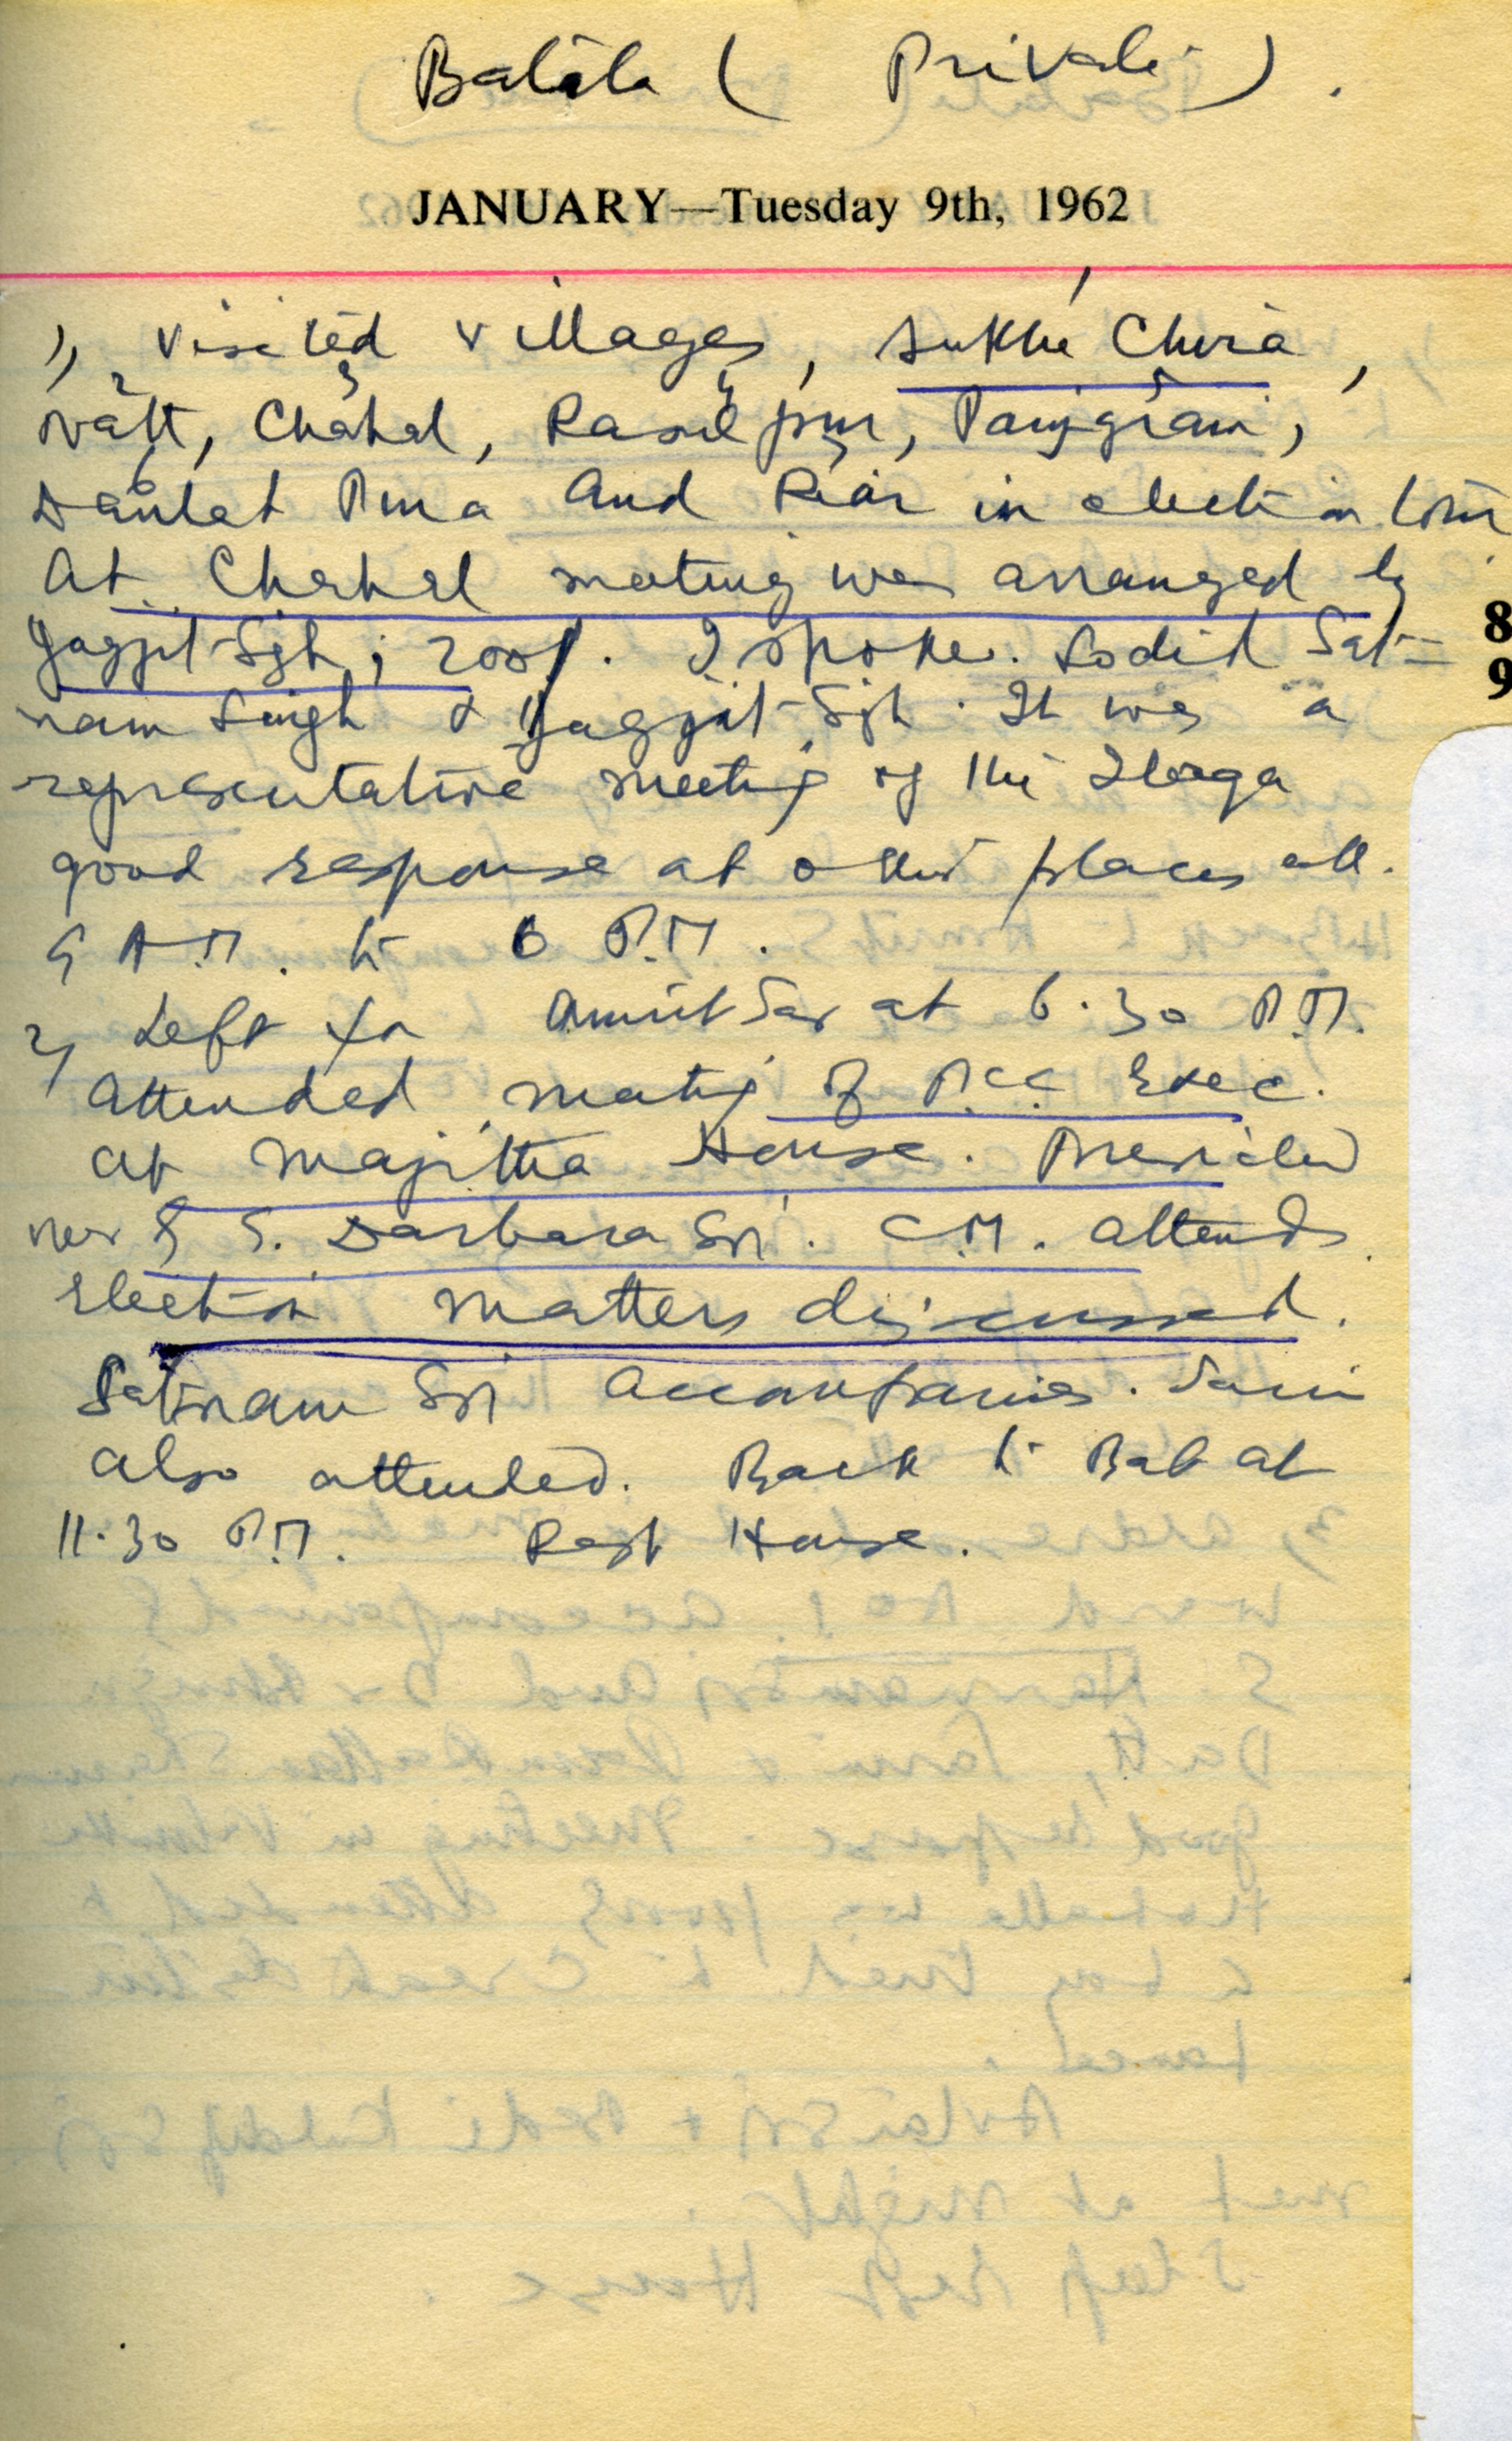 Batala ( Private ) .
JANUARY—Tuesday 9th, 1962
1, Visited villages, Sukha Chira,
Natt, Chahal, Rasulpur, Panjgrain,
Daulat Pura and Riar in election tour
At Chahal meeting was arranged by
Jagjit Sgh; 200/. I spoke. Sodhi Sat-
nam Singh & Jagjit Sgh. It was a
representative meeting of the Ilaqa
good response at other places all.
9 A.M. to 6 P.M.
2, Left for Amritsar at 6.30 P.M.
Attended meeting of P.C.C. Exec.
at Majitha House. Presided
over by S. Darbara Sn. C.M. attends.
Election matters discussed.
Satnam Sn accompanies.
also attended. Back to Bat at
11.30 P.M. Rest House.
8
9